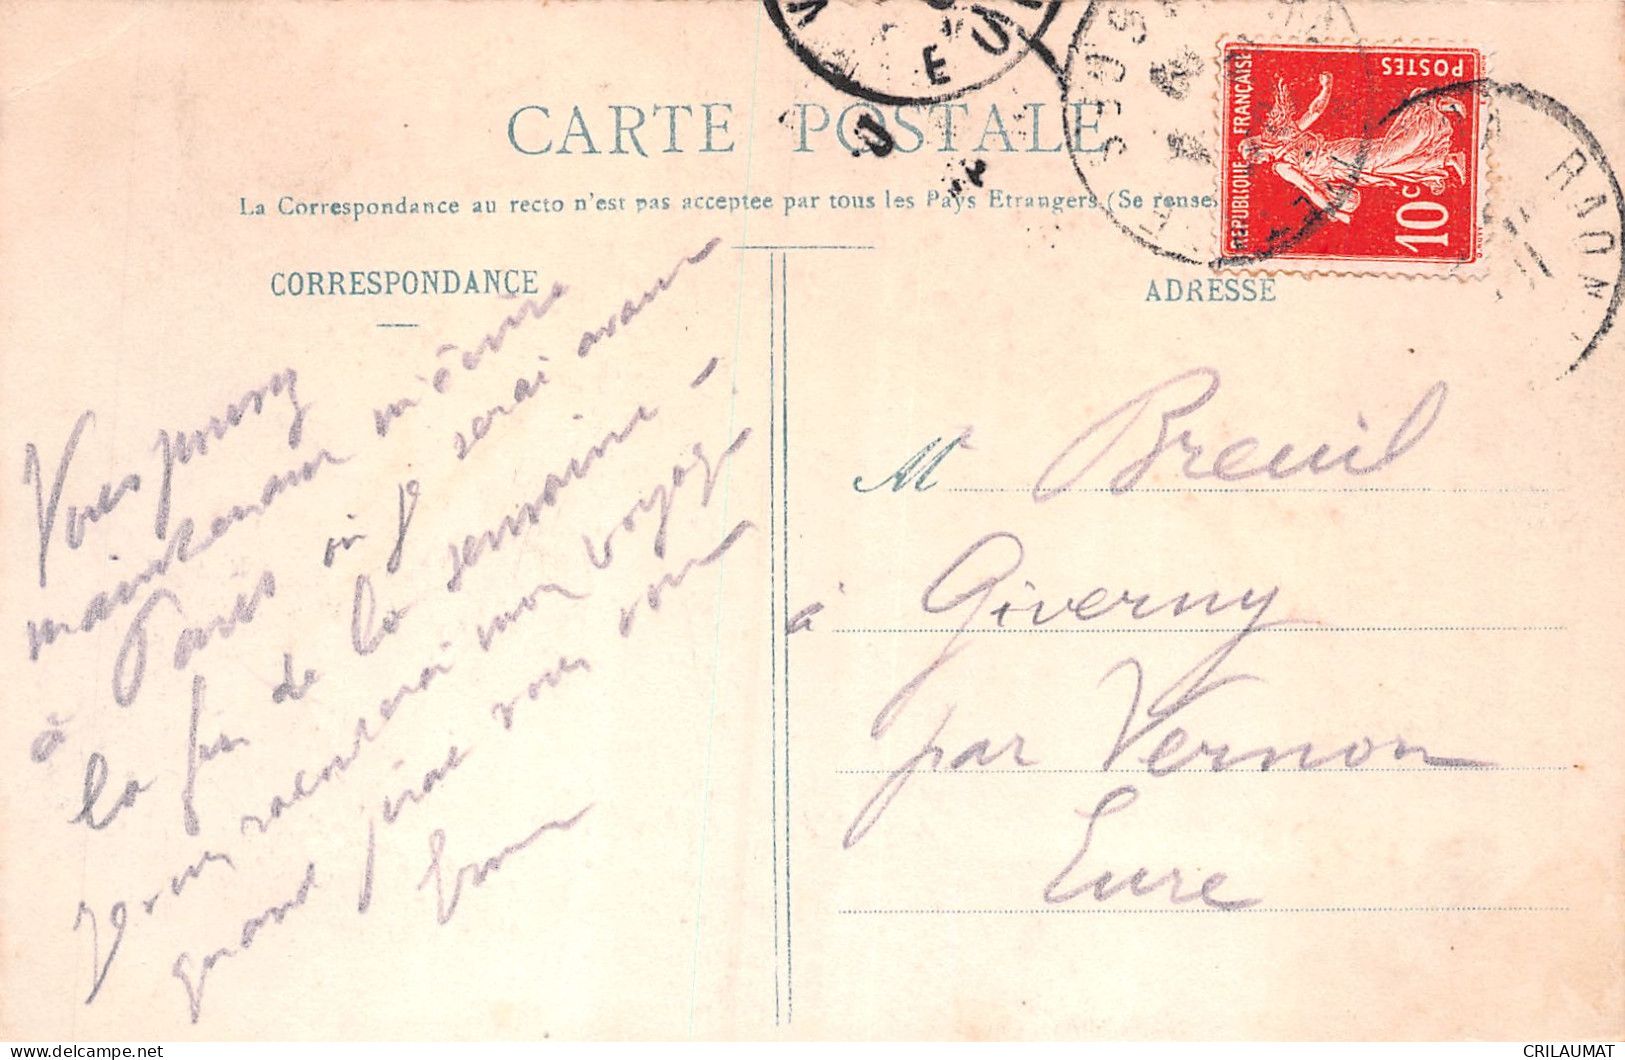 CARTE POSTALE
La Correspondance au recto n'est pas acceptée par tous les Pays Etrangers (Se rense
CORRESPONDANCE
ADRESSE
REPUBLIQUE FRANÇAISE
POSTES
10c
RAON
Vous pouvez
maintenant m'écrire
à Paris où je serai avant
la fin de la semaine -
Je vous raconterai mon voyage
quand j'irai vous voir
M Breuil
à Giverny
par Vernon
Eure
CRILAUMAT